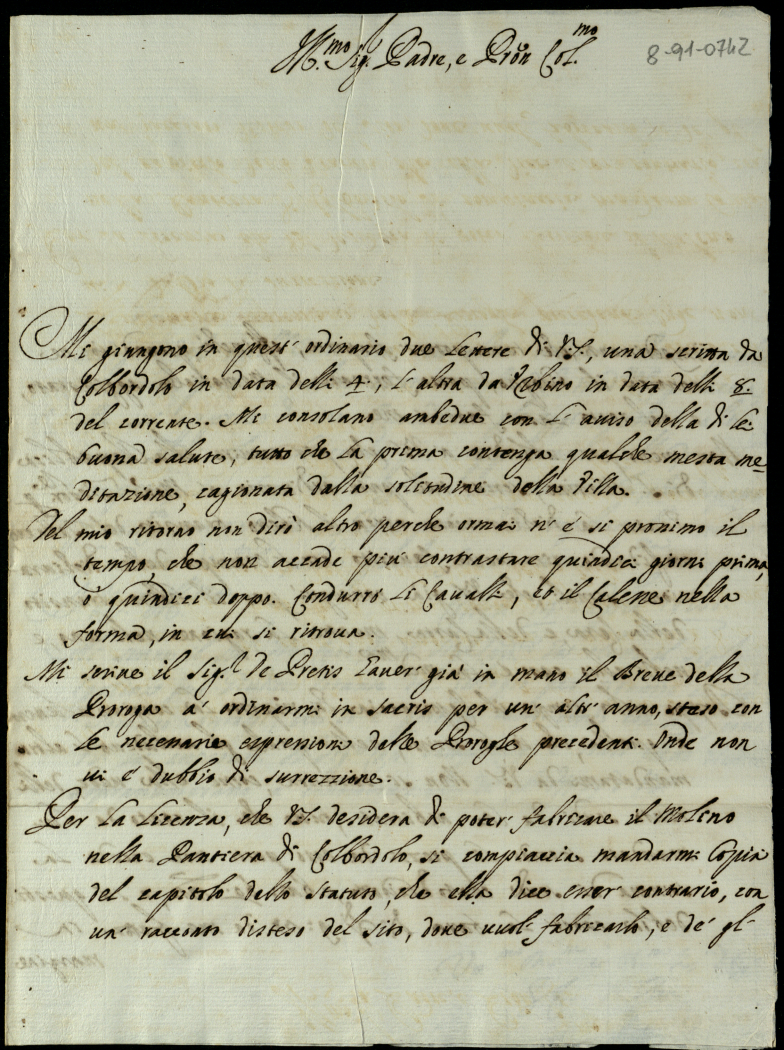 Ill.mo Sig. Padre, e Pron Col.mo
8-91-0742
Mi giungono in quest' ordinario due lettere di VS., una scritta da
Colbordolo in data delli 4., l'altra da Urbino in data delli 8.
del corrente. Mi consolano ambedue con l'aviso della di lei
buona salute, tutto che la prima contenga qualche mesta me=
ditazione, cagionata dalla solitudine della Villa.
Del mio ritorno non dirò altro perche ormai n' è si prossimo il
tempo, che non accade più contrastare quindici giorni prima,
ò quindici doppo. Condurrò li Cavalli, et il Calesse nella
forma, in cui si ritrova.
Mi scrive il Sig.r de Pretis haver' già in mano il Breve della
Proroga à ordinarmi in sacris per un' altr' anno, steso con
le necessarie espressioni delle Proroghe precedenti. Onde non
vi è dubbio di surrezzione.
Per la licenza, che VS. desidera di poter' fabricare il Molino
nella Pantiera di Colbordolo, si compiaccia mandarmi Copia
del capitolo dello Statuto, che ella dice esser' contrario, con
un' racconto disteso del sito, dove vuol' fabricarlo, e de' gl'